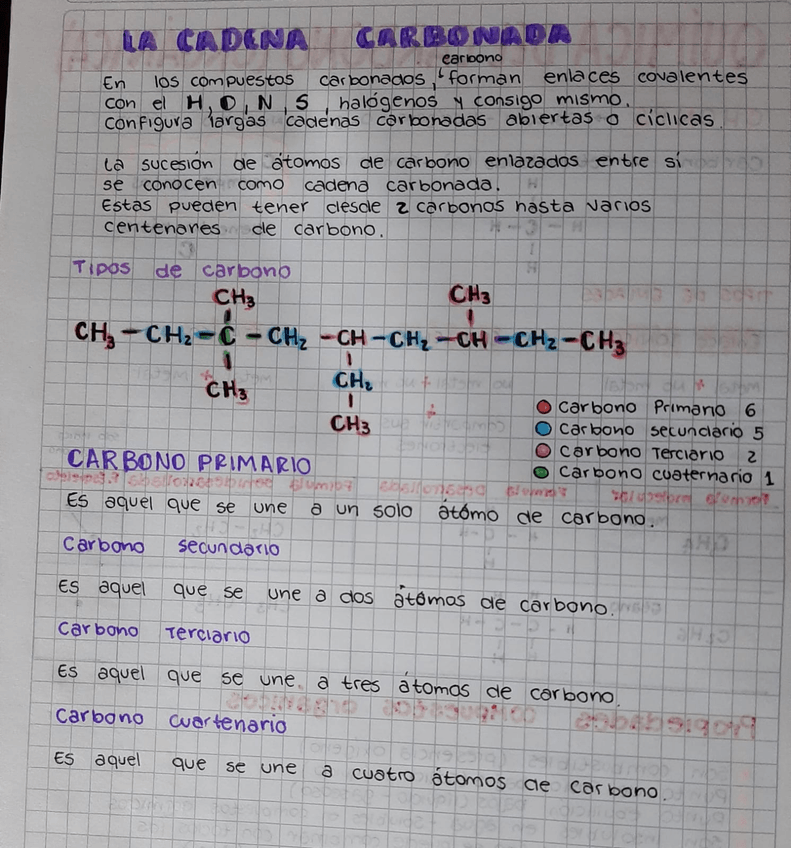 LA CADENA CARBONADA
carbono
En los compuestos carbonados, forman enlaces covalentes
con el H, O, N, S, halógenos y consigo mismo.
configura largas cadenas carbonadas abiertas o cíclicas.
La sucesión de átomos de carbono enlazados entre sí
se conocen como cadena carbonada.
Estas pueden tener desde 2 carbonos hasta varios
centenares de carbono.
Tipos de carbono
CH₃ CH₃
CH₃ – CH₂ – C – CH₂ – CH – CH₂ – CH – CH₂ – CH₃
CH₃ CH₂
CH₃
Carbono Primario 6
Carbono secundario 5
Carbono Terciario 2
Carbono cuaternario 1
CARBONO PRIMARIO
Es aquel que se une a un solo átomo de carbono.
Carbono secundario
Es aquel que se une a dos átomos de carbono.
Carbono Terciario
Es aquel que se une a tres átomos de carbono.
Carbono cuartenario
Es aquel que se une a cuatro átomos de carbono.